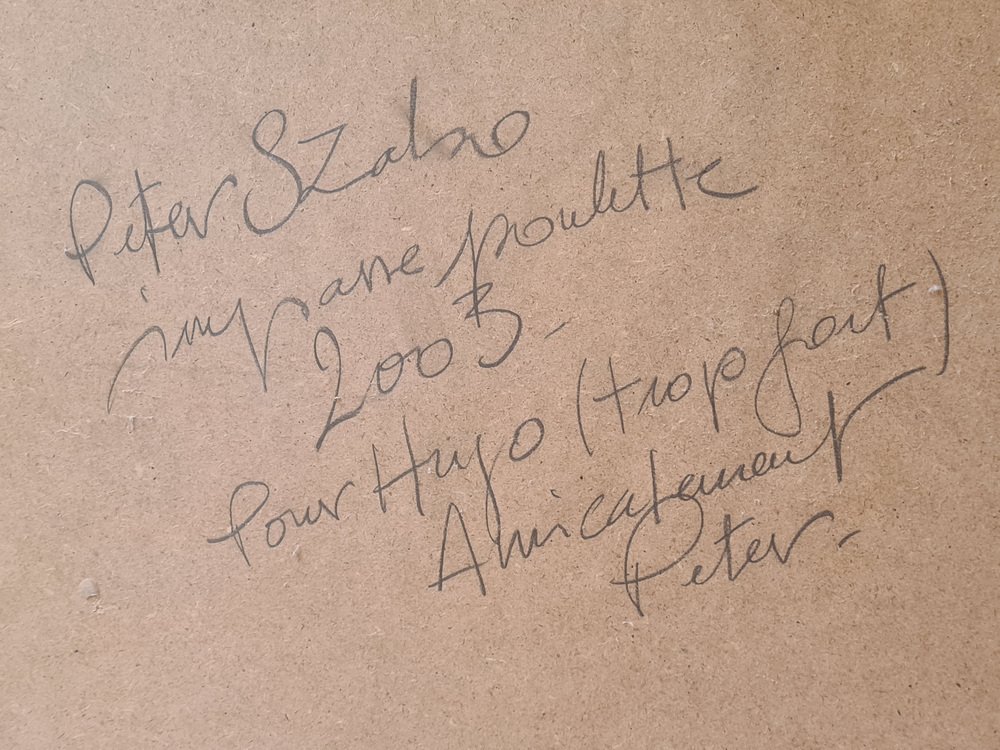 Peter Szabo
impasse poulette
2003-
Pour Hugo (trop fort)
Amicalement
Peter-